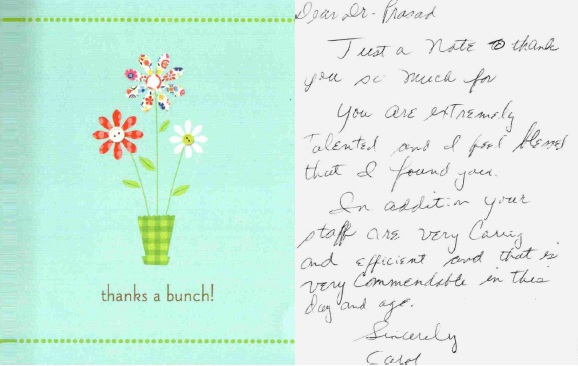 thanks a bunch!
Dear Dr. Prasad
Just a Note to thank
you so much for
You are extremely
Talented and I feel blessed
that I found you.
In addition your
staff are very Caring
and efficient and that is
very Commendable in this
day and age.
Sincerely
Carol